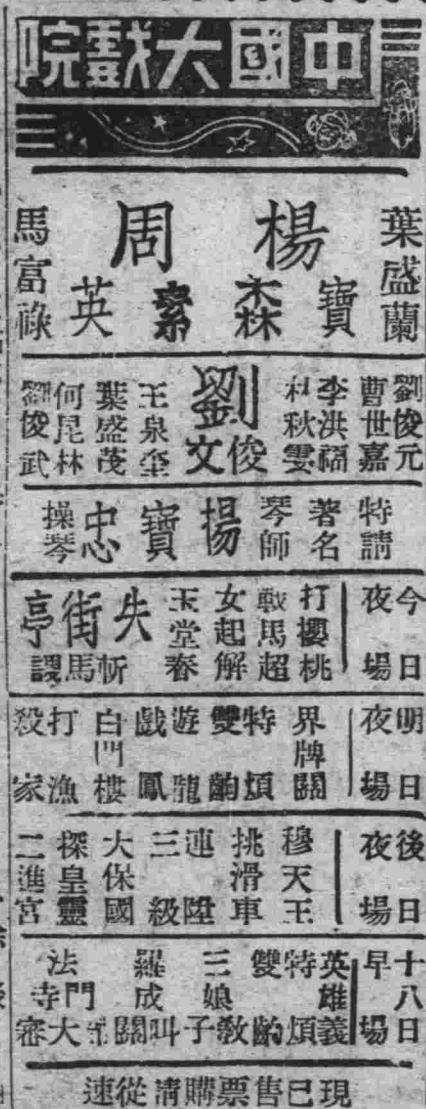 中國大戲院
葉盛蘭
楊寶森
周素英
馬富祿
劉俊元
曹世嘉
李洪福
秋雯
劉俊文
王泉奎
葉盛茂
何昆林
劉俊武
特請
著名
琴師
楊寶忠
操琴
今日
夜場
打櫻桃
戰馬超
女起解
玉堂春
失街亭
斬馬謖
明日
夜場
界牌關
特煩
雙齣
遊龍
戲鳳
白門樓
打漁
殺家
後日
夜場
穆天王
挑滑車
連陞
三級
大保國
探皇靈
二進宮
十八日
早場
英雄義
特煩
雙齣
三娘教子
羅成叫關
法門寺
大審
現已售票購請從速